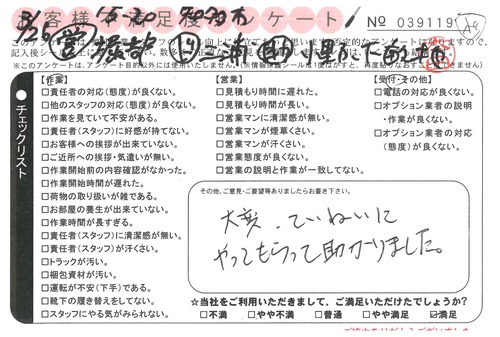 お客様満足度アンケート!
№ 039119
記入後シ
※このアンケートは、アンケート目的以外には使用いたしません。
チェックリスト
【作業】
□責任者の対応(態度)が良くない。
□他のスタッフの対応(態度)が良くない。
□作業を見ていて不安がある。
□責任者(スタッフ)に好感が持てない。
□お客様への挨拶が出来ていない。
□ご近所への挨拶・気遣いが無い。
□作業開始前の内容確認がなかった。
□作業開始時間が遅れた。
□荷物の取り扱いが雑である。
□お部屋の養生が出来ていない。
□作業時間が長すぎる。
□責任者(スタッフ)に清潔感が無い。
□責任者(スタッフ)が汗くさい。
□トラックが汚い。
□梱包資材が汚い。
□運転が不安(下手)である。
□靴下の履き替えをしてない。
□スタッフにやる気がみられない。
【営業】
□見積もり時間に遅れた。
□見積もり時間が長い。
□営業マンに清潔感が無い。
□営業マンが煙草くさい。
□営業マンが汗くさい。
□営業態度が良くない。
□営業の説明と作業が一致してない。
【受付・その他】
□電話の対応が良くない。
□オプション業者の説明
・作業が良くない。
□オプション業者の対応
(態度)が良くない。
その他、ご意見・ご要望等ありましたらお書き下さい。
大変、ていねいに
やってもらって助かりました。
☆当社をご利用いただきまして、ご満足いただけたでしょうか?
□不満 □やや不満 □普通 □やや満足 ☑満足